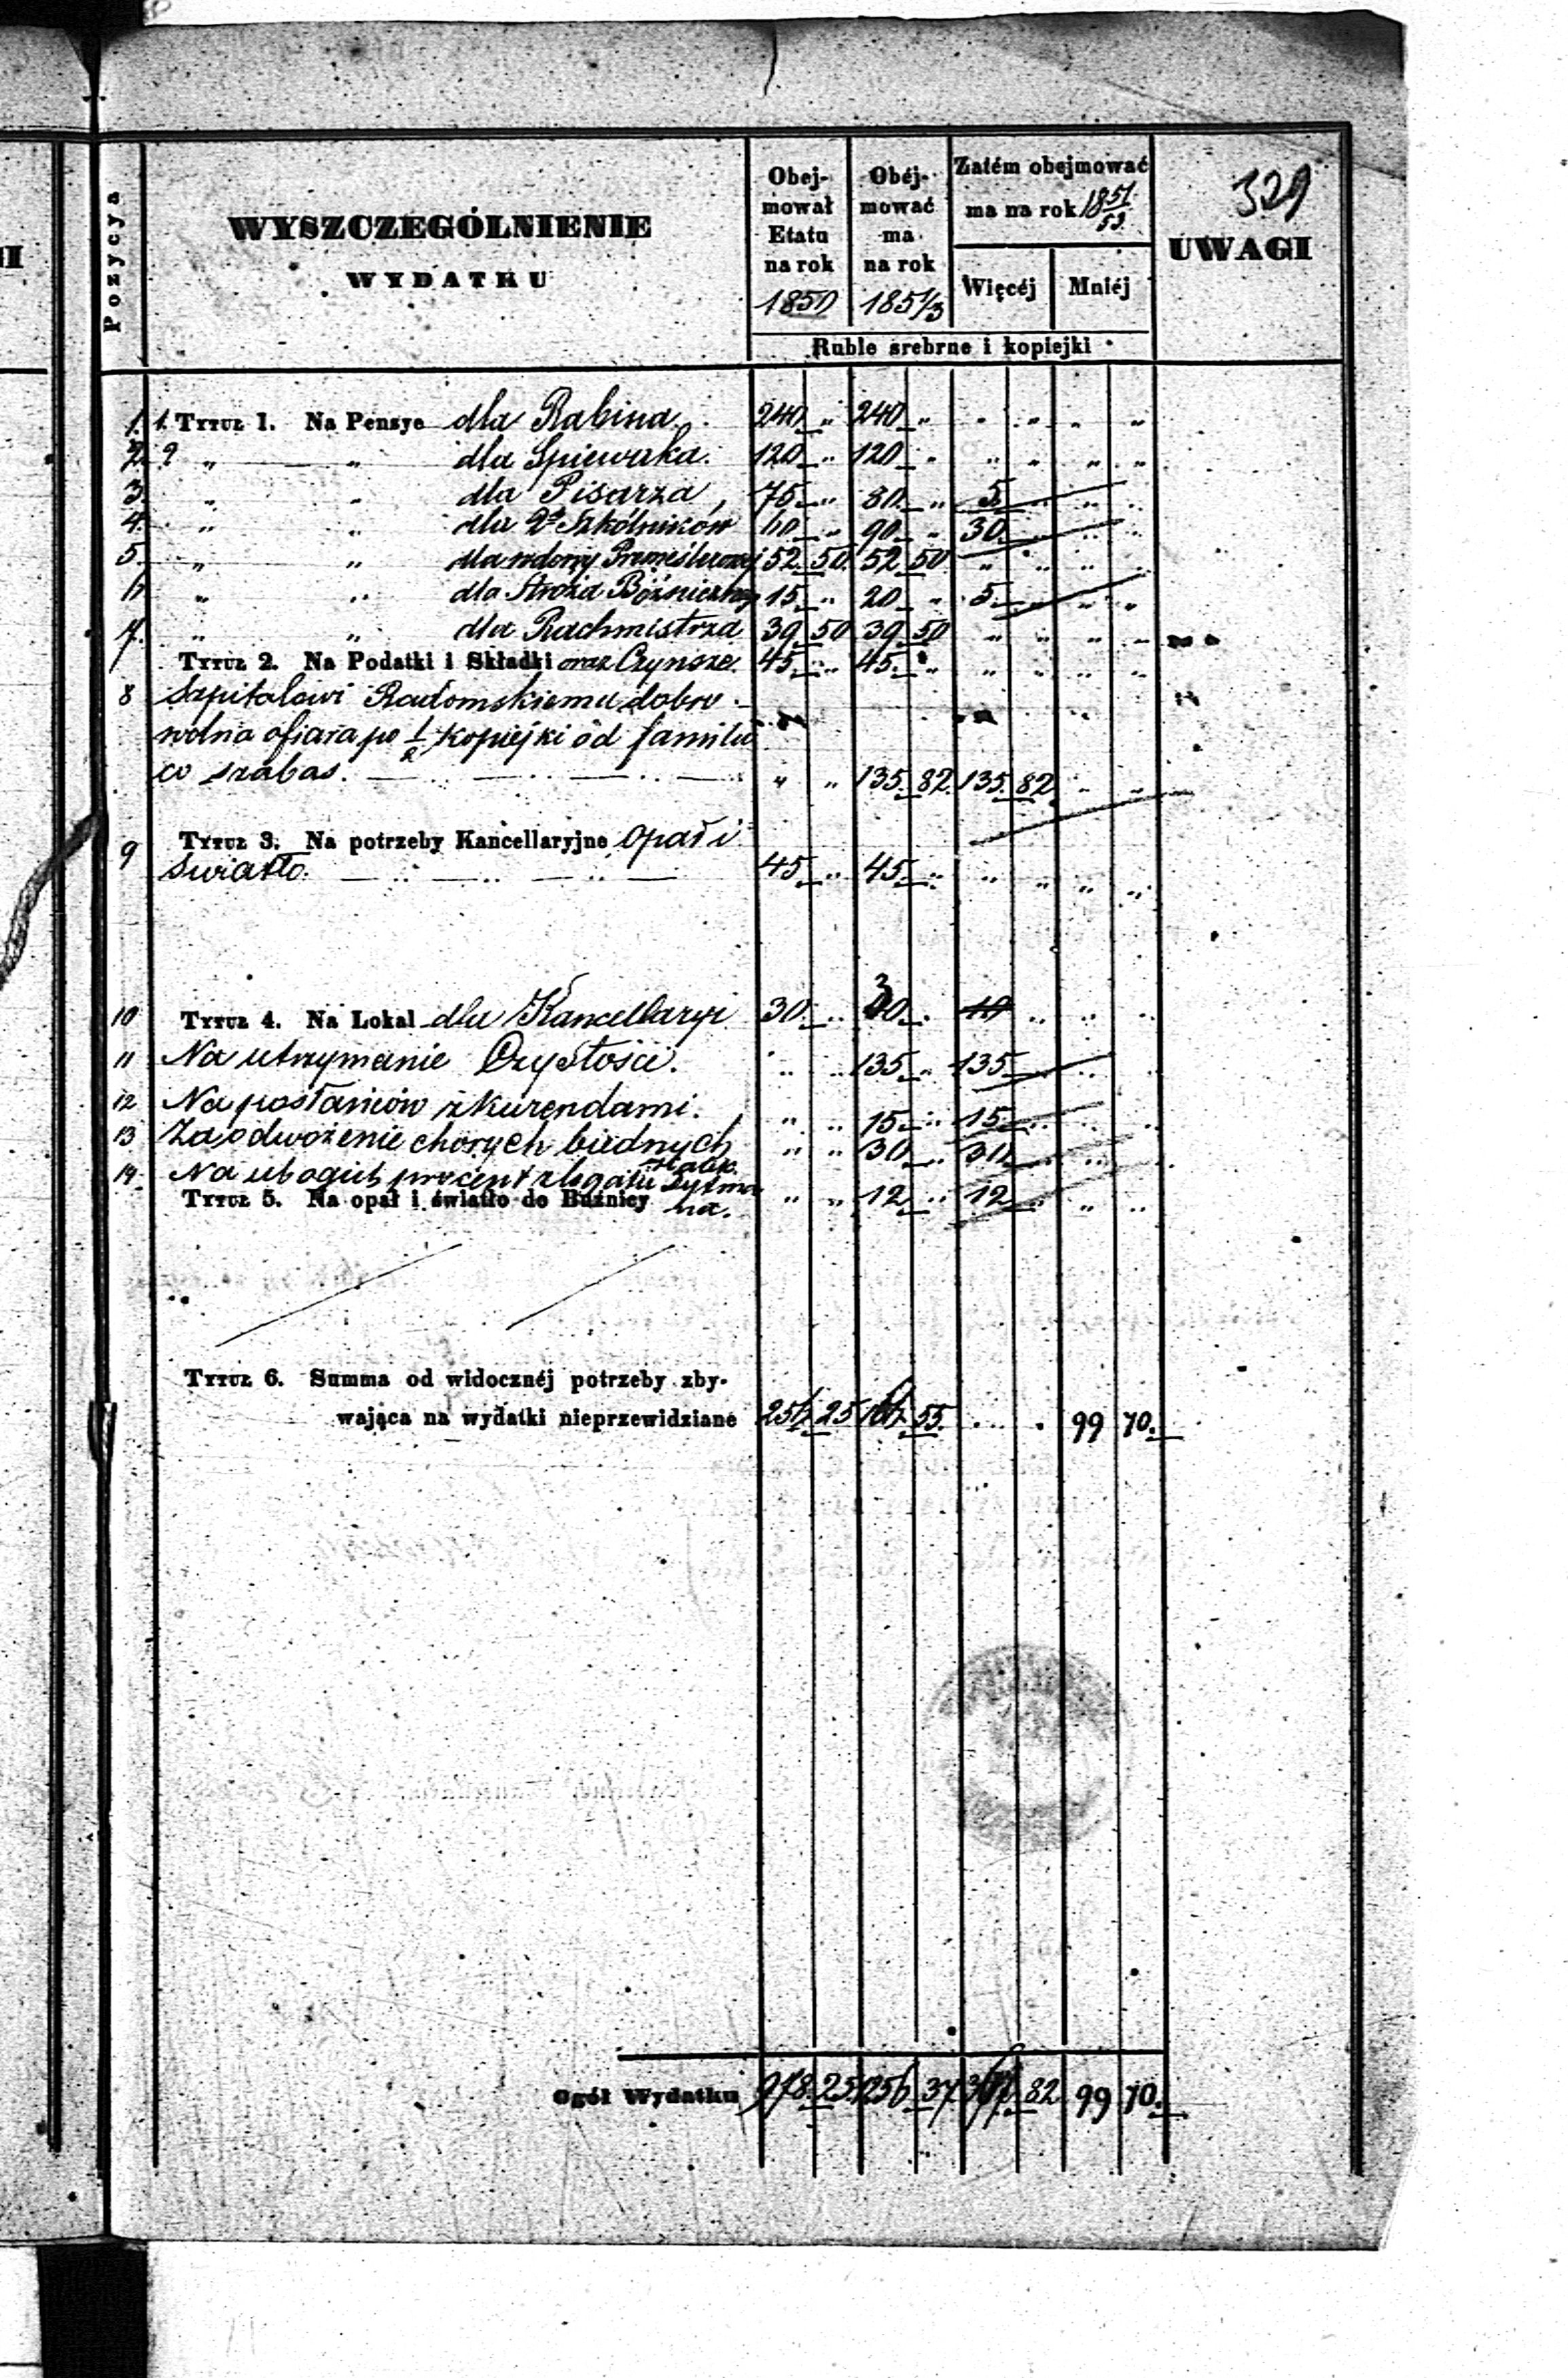 329
Pozycya
WYSZCZEGÓLNIENIE
WYDATKU
Obej-
mował
Etatu
na rok
1850
Obéj-
mować
ma
na rok
1851/3
Zatém obejmować
ma na rok 1851/53
Więcéj
Mniéj
UWAGI
Ruble srebrne i kopiejki
1. 1. Tytuł 1. Na Pensye dla Rabina. 240 „ 240 „ „ „ „ „
2. 2 „ „ dla Spiewaka. 120 „ 120 „ „ „ „ „
3. „ „ dla Pisarza, 75 „ 80 „ 5 „ „ „
4. „ „ dla 2ch Szkólników 60 „ 90 „ 30 „ „ „
5. „ „ dla wdowy 52 50 52 50 „ „ „ „
6 „ „ dla Stróża Bóżniczny 15 „ 20 „ 5 „ „ „
7. „ „ dla Rachmistrza 39 50 39 50 „ „ „ „
Tytuł 2. Na Podatki i Składki oraz Czynsze. 45 „ 45 „ „ „ „ „
8 Szpitalowi Radomskiemu dobro-
wolna ofiara po 1/2 kopiejki od familii
co szabas. „ „ 135 82 135 82 „ „
9 Tytuł 3. Na potrzeby Kancellaryjne Opał i
Swiatło. 45 „ 45 „ „ „ „ „
10 Tytuł 4. Na Lokal dla Kancellaryi 30 „ 30 „ 10 „ „ „
11 Na utrzymanie Czystości. „ „ 135 „ 135 „ „ „
12 Na posłańców z kurendami. „ „ 15 „ 15 „ „ „
13 Za odwożenie chorych biednych „ „ 30 „ 30 „ „ „
14 Na ubogich procent z legatu
„ „ 12 „ 12 „ „ „
Tytuł 5. Na opał i światło do Bużnicy
Tytuł 6. Summa od widocznéj potrzeby zby-
wająca na wydatki nieprzewidziane 256 25 156 55 „ „ 99 70
Ogół Wydatku 978 25 1256 37 367 82 99 70